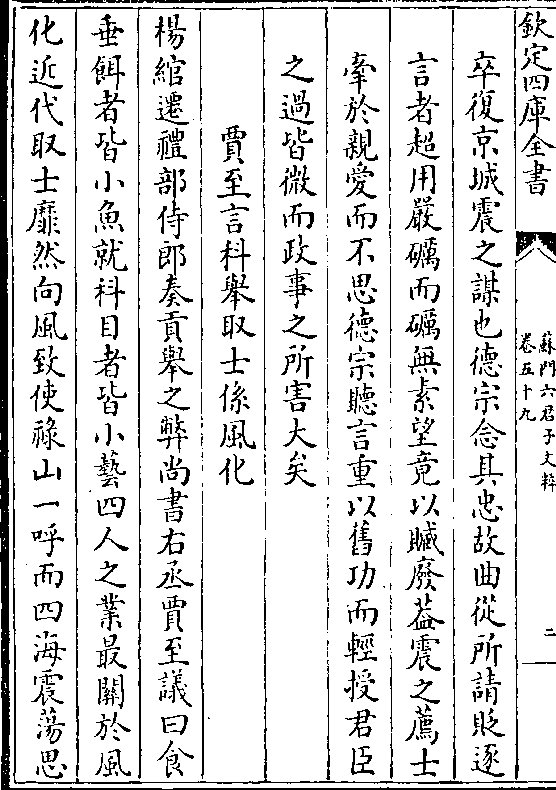 欽定四庫全書
蘇門六君子文粹
卷五十九
二
卒復京城震之謀也德宗念其忠故曲從所請貶逐
言者超用嚴礪而礪無素望竟以贓廢葢震之薦士
牽於親愛而不思德宗聽言重以舊功而輕授君臣
之過皆微而政事之所害大矣
賈至言科舉取士係風化
楊綰遷禮部侍郎奏貢舉之弊尚書右丞賈至議曰食
垂餌者皆小魚就科目者皆小藝四人之業最關於風
化近代取士靡然向風致使祿山一呼而四海震蕩思